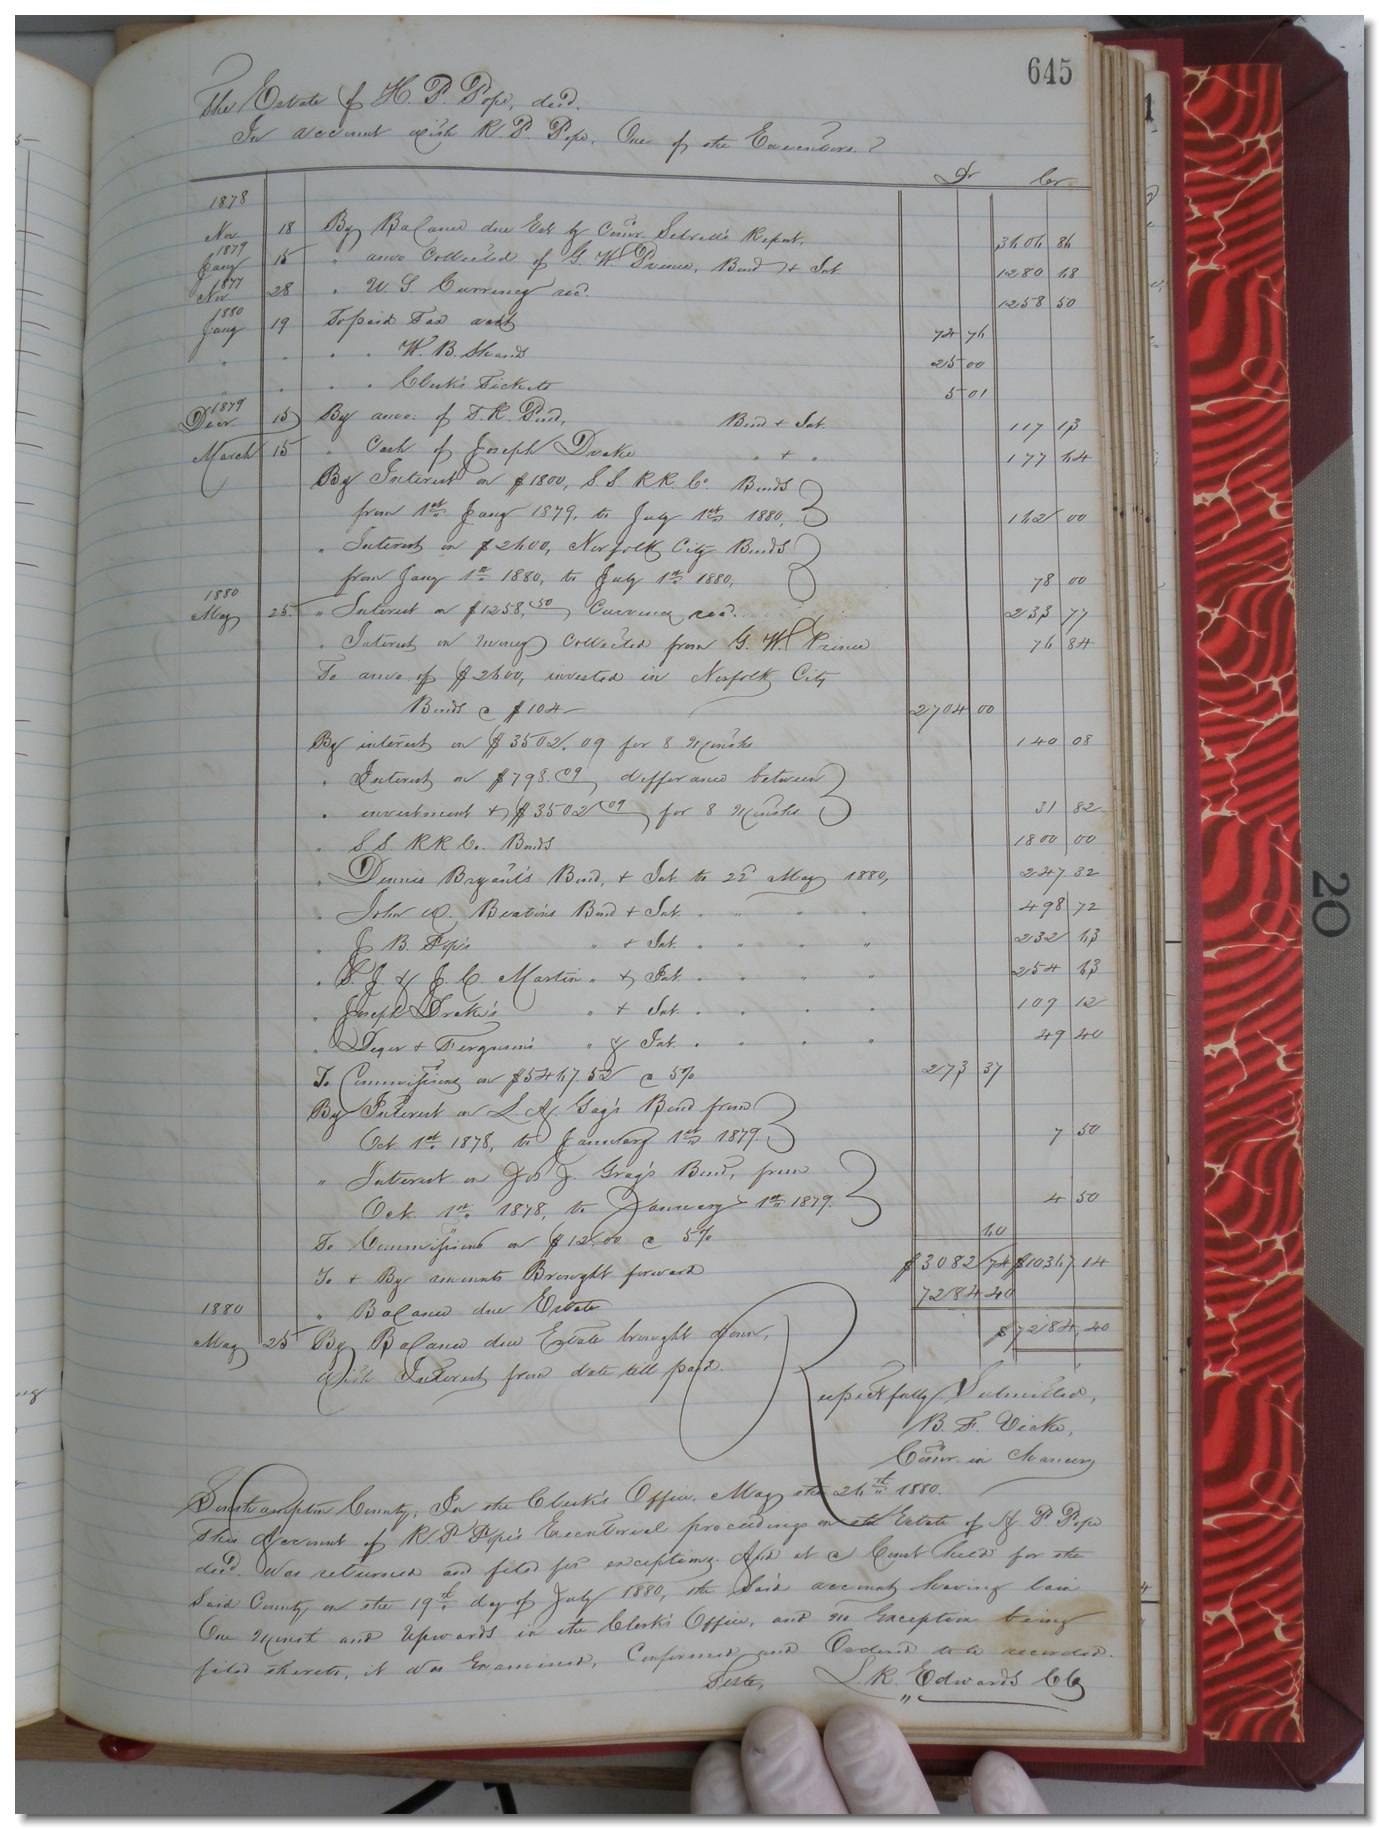 645
The Estate of H. P. Pope, decd.
In account with R. P. Pope, One of the Executors.
Dr Cr
1878
Nov 18 By Balance due Est by Comr. Sebrell's Report, 3606 86
1879
Jany 15 " amo. Collected of G. W. Prince, Bond & Int 1280 68
1877
Nov 28 " U. S. Currency recd. 1258 50
1880
Jany 19 To paid Tax acct 74 76
" " " " W. B. Shands 25 00
" " " " Clerk's Tickets 5 01
1879
Decr 15 By amo. of T. R. Pond, Bond & Int. 117 13
March 15 " Cash of Joseph Drake " & " 177 64
By Interest on $1800, S. S. R R. Co. Bonds
from 1st Jany 1879, to July 1st 1880, 162 00
" Interest on $2600, Norfolk City Bonds
from Jany 1st 1880, to July 1st 1880, 78 00
1880
May 25 " Interest on $1258.50, Currency recd. 233 77
" Interest on money Collected from G. W. Prince 76 84
To amo of $2600, invested in Norfolk City
Bonds @ $104 2704 00
By interest on $3502.09 for 8 Months 140 08
" Interest on $798.09 differance between
" investment & $3502.09 for 8 Months 31 82
" S. S. R R Co. Bonds 1800 00
" Dennis Bryant's Bond, & Int. to 25 May 1880, 247 32
" John W. Beaton's Bond & Int. " " " " 498 72
" J. B. Pope's " & Int. " " " " 232 63
" S. J. & J. C. Martin " & Int. " " " " 254 63
" Joseph Drake's " & Int. " " " " 109 12
" & Ferguson's " & Int. " " " " 49 40
To Commissions on $5467.52 @ 5% 273 37
By Interest on L. A. Gay's Bond from
Oct. 1st 1878, to January 1st 1879. 7 50
" Interest on Jos J. Gray's Bond, from
Oct. 1st 1878, to January 1st 1879. 4 50
To Commissions on $12.00 @ 5% 60
To & By amounts Brought forward $3082 74 $10367 14
" Balance due Estate 7284 40
1880
May 25 By Balance due Estate brought down, $7284 40
With Interest from date till paid.
Respectfully Submitted,
B. F. Vicks,
Comr. in Chancery
Southampton County, In the Clerk's Office, May the 26th 1880.
This Account of R. P. Pope's Executorial proceedings on the Estate of H. P. Pope
decd. Was returned and filed for exceptions. And at a Court held for the
said County on the 19th day of July 1880, the said account having lain
One Month and Upwards in the Clerk's Office, and no Exception being
filed thereto, it was Examined, Confirmed and Ordered to be recorded.
Teste, L. R. Edwards CC
20